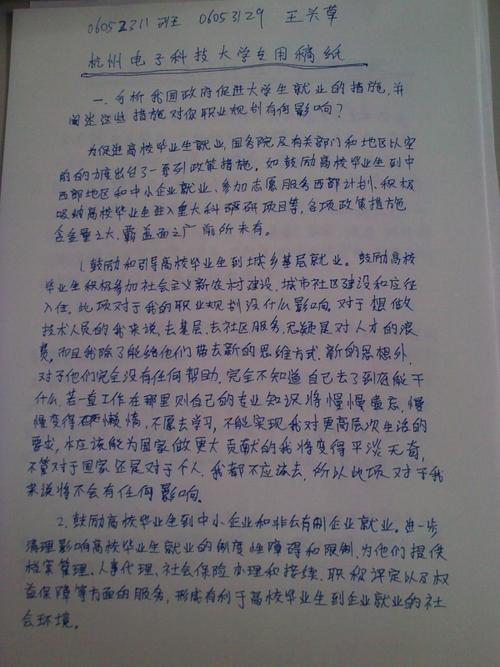 06052311班 06053129 王兴草
杭州电子科技大学专用稿纸
一、分析我国政府促进大学生就业的措施,并
阐述这些措施对你职业规划有何影响?
为促进高校毕业生就业,国务院及有关部门和地区以空
前的力度出台了一系列政策措施。如鼓励高校毕业生到中
西部地区和中小企业就业、参加志愿服务西部计划、积极
吸纳高校毕业生进入重大科研项目等,各项政策措施
含金量之大、覆盖面之广前所未有。
1.鼓励和引导高校毕业生到城乡基层就业。鼓励高校
毕业生积极参加社会主义新农村建设、城市社区建设和应征
入伍。此项对于我的职业规划没什么影响。对于想做
技术人员的我来说,去基层、去社区服务,无疑是对人才的浪
费。而且我除了能给他们带去新的思维方式、新的思想外,
对于他们完全没有任何帮助。完全不知道自己去了到底能干
什么。若一直工作在那里则自己的专业知识将慢慢遗忘,慢
慢变得懒惰,不愿去学习,不能实现我对更高层次生活的
要求,本应该能为国家做更大贡献的我将变得平淡无奇,
不管对于国家还是对于个人,我都不应该去,所以此项对于我
来说将不会有任何影响。
2.鼓励高校毕业生到中小企业和非公有制企业就业。进一步
清理影响高校毕业生就业的制度性障碍和限制,为他们提供
档案管理、人事代理、社会保险办理和接续、职称评定以及权
益保障等方面的服务,形成有利于高校毕业生到企业就业的社
会环境。